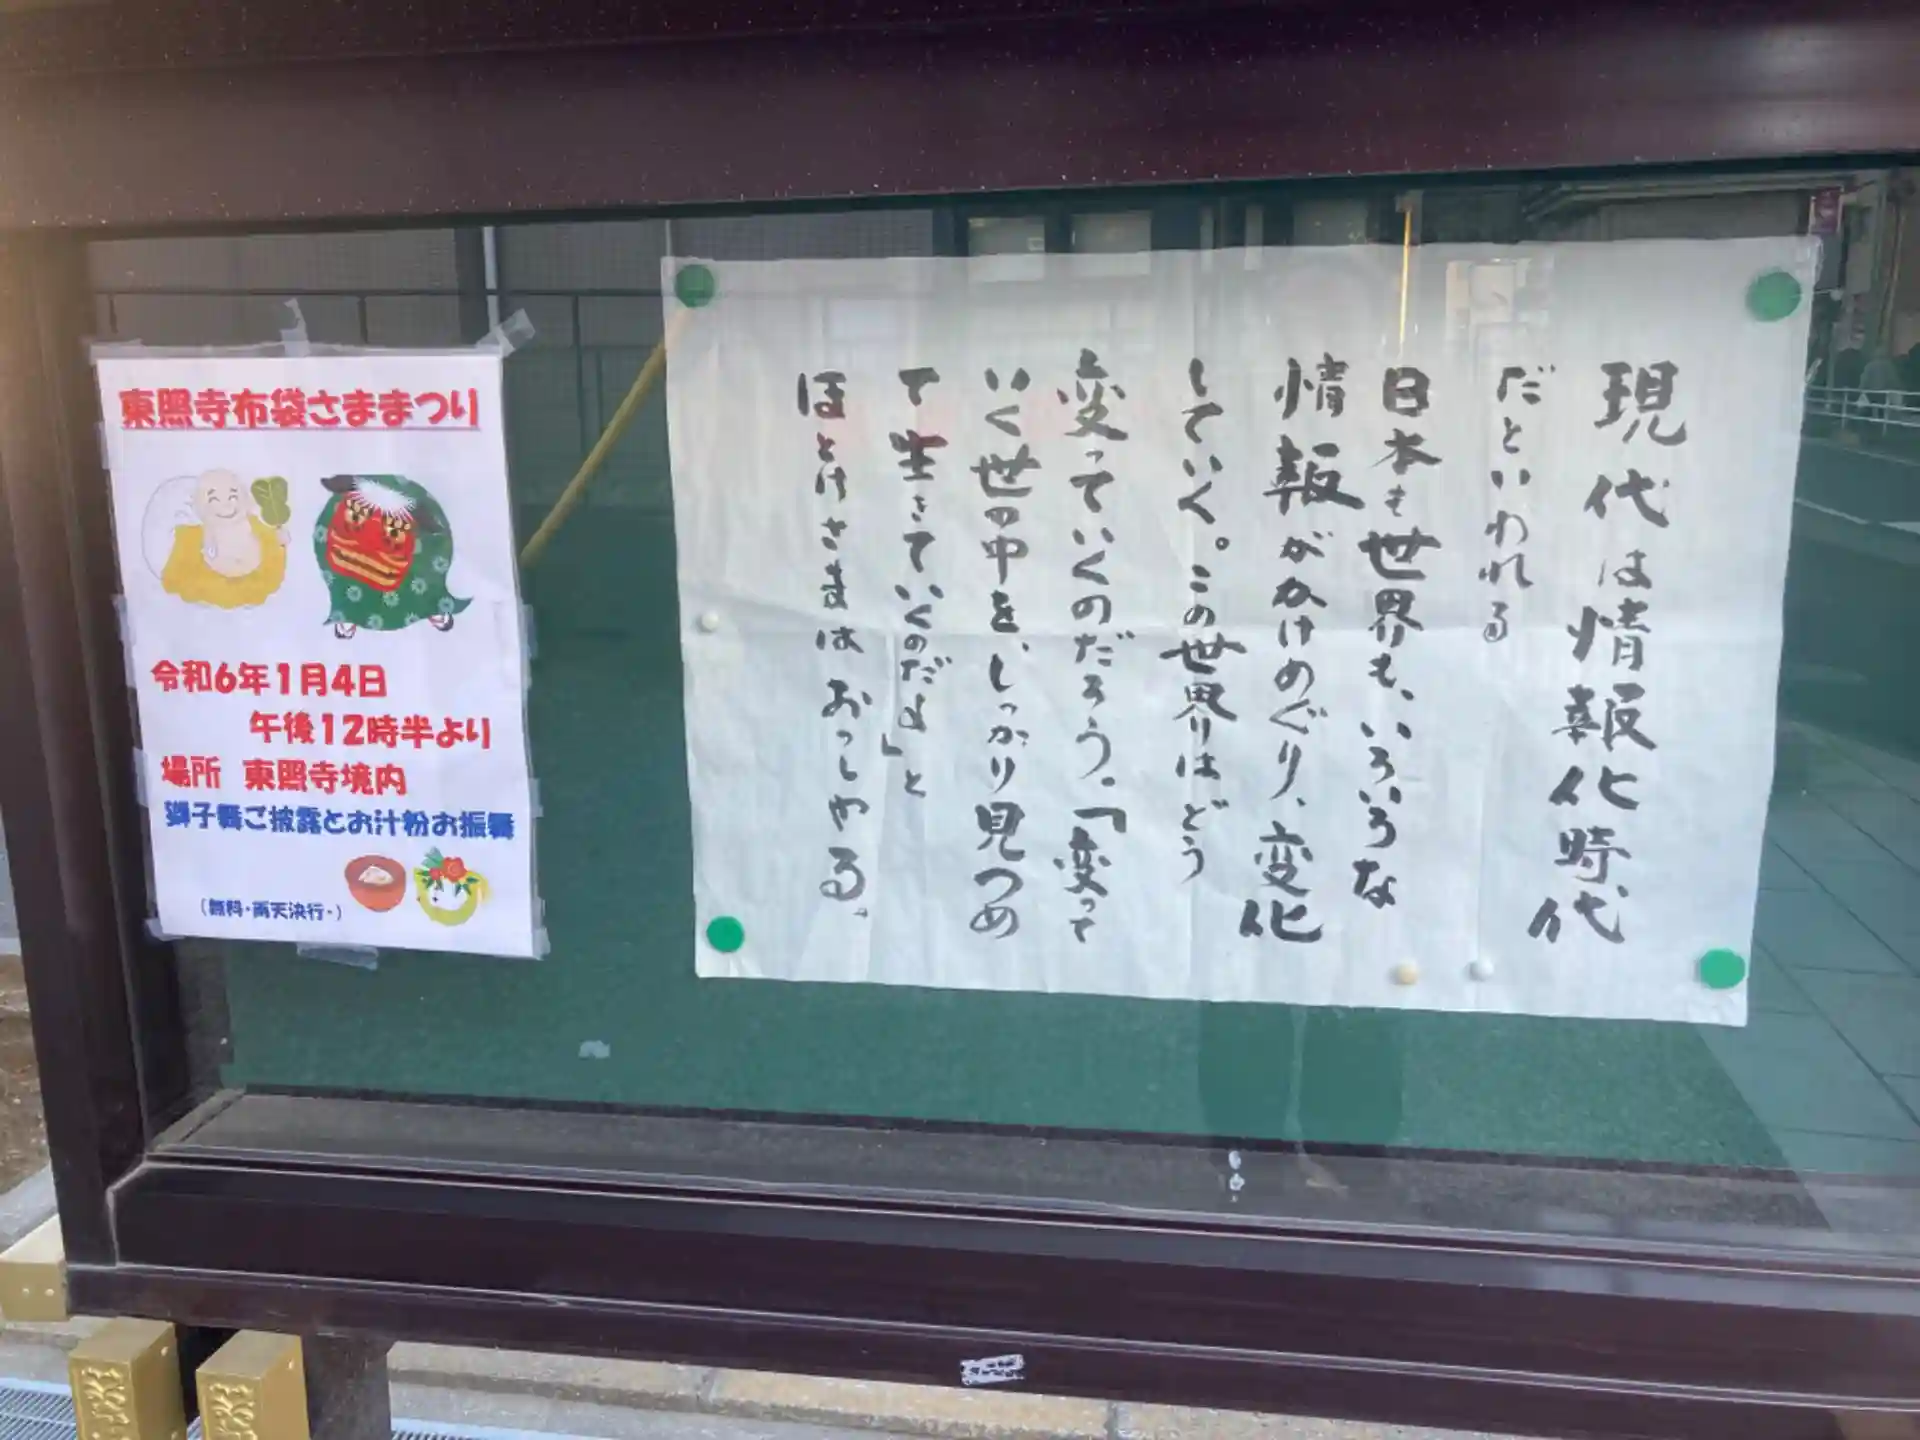 東照寺布袋さままつり
令和6年1月4日
午後12時半より
場所 東照寺境内
獅子舞ご披露とお汁粉お振舞
(無料・雨天決行・)
現代は情報化時代
だといわれる
日本も世界も、いろいろな
情報がかけめぐり、変化
していく。この世界はどう
変っていくのだろう。「変って
いく世の中を、しっかり見つめ
て生きていくのだよ」と
ほとけさまは おっしゃる。